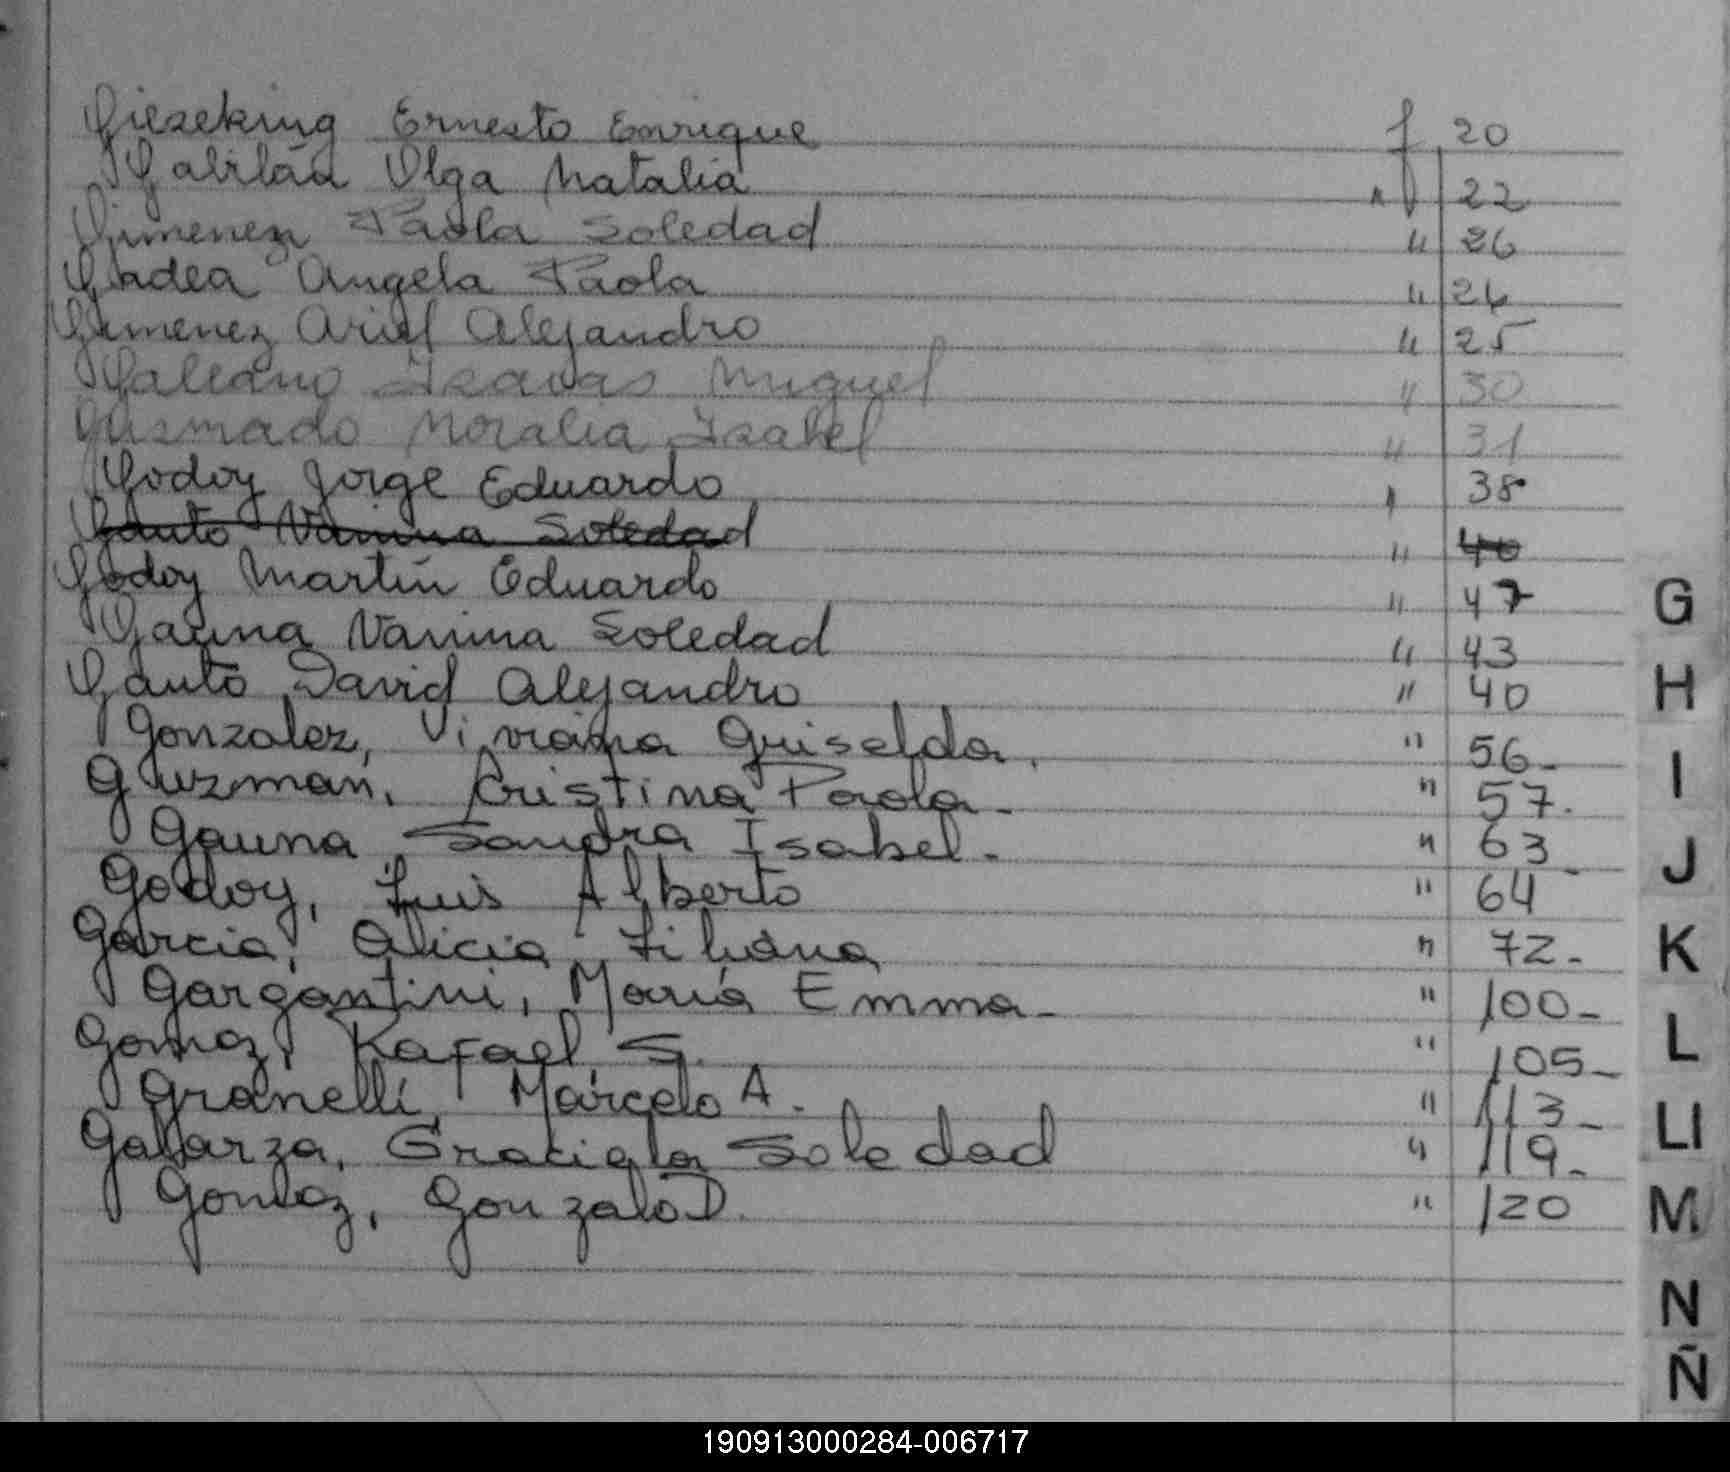 Gieseking Ernesto Enrique f 20
Gabilán Olga Natalia " 22
Gimenez Paola Soledad " 26
Gadea Angela Paola " 24
Gimenez Ariel Alejandro " 25
Galeano Isavas Miguel " 30
Gusmado Noralia Isabel " 31
Godoy Jorge Eduardo " 38
Gauto Vanina Soledad " 40
Godoy Martín Eduardo " 47
Gauna Vanina Soledad " 43
Gauto David Alejandro " 40
Gonzalez, Viviana Griselda. " 56-
Guzman, Cristina Paola- " 57.
Gauna Sandra Isabel- " 63
Godoy, Luis Alberto " 64
Garcia, Alicia Liliana " 72-
Gargantini, María Emma- " 100-
Gomez, Rafael G. " 105-
Granelli, Marcelo A. " 113-
Galarza, Graciela Soledad " 119-
Gomez, Gonzalo D. " 120
G
H
I
J
K
L
Ll
M
N
Ñ
190913000284-006717